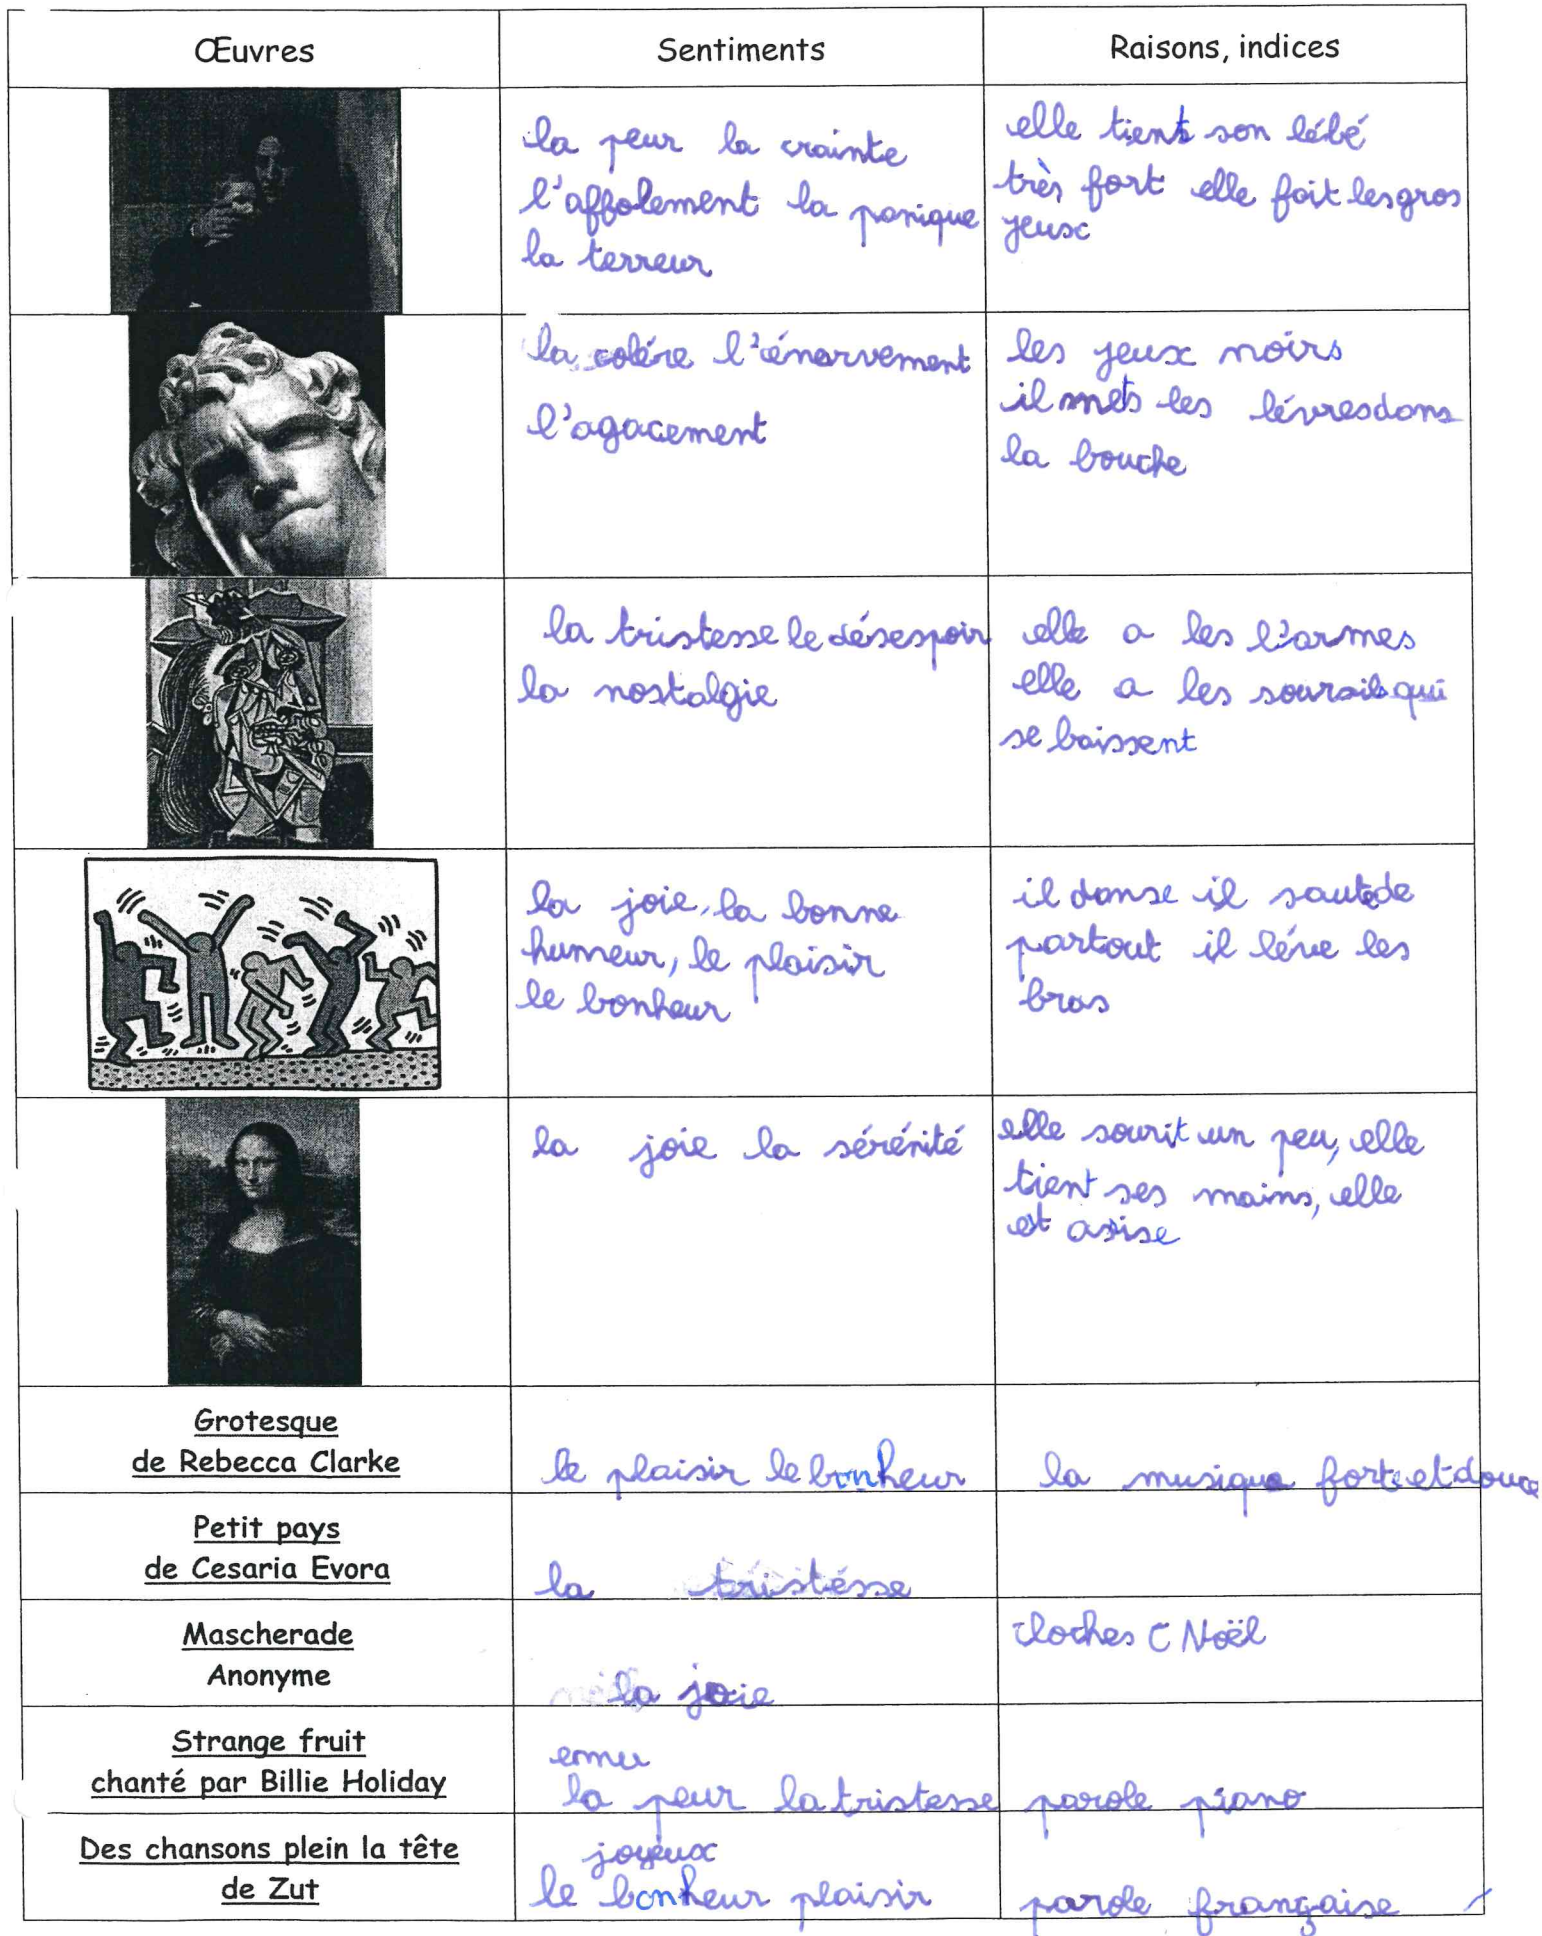 Œuvres
Sentiments
Raisons, indices
la peur la crainte
l'affolement la panique
la terreur
elle tient son bébé
très fort elle fait les gros
yeusc
la colére l'énervement
l'agacement
les yeux noirs
il mets les lévres dans
la bouche
la tristesse le désespoir
la nostalgie
elle a les l'armes
elle a les sourcils qui
se baissent
la joie, la bonne
humeur, le plaisir
le bonheur
il danse il saute de
partout il léve les
bras
la joie la sérénité
elle sourit un peu, elle
tient ses mains, elle
est assise
Grotesque
de Rebecca Clarke
le plaisir le bonheur
la musique forte et douce
Petit pays
de Cesaria Evora
la tristésse
Mascherade
Anonyme
la joie
cloches C Noël
Strange fruit
chanté par Billie Holiday
emu
la peur la tristesse
parole piano
Des chansons plein la tête
de Zut
joyeux
le bonheur plaisir
parole française